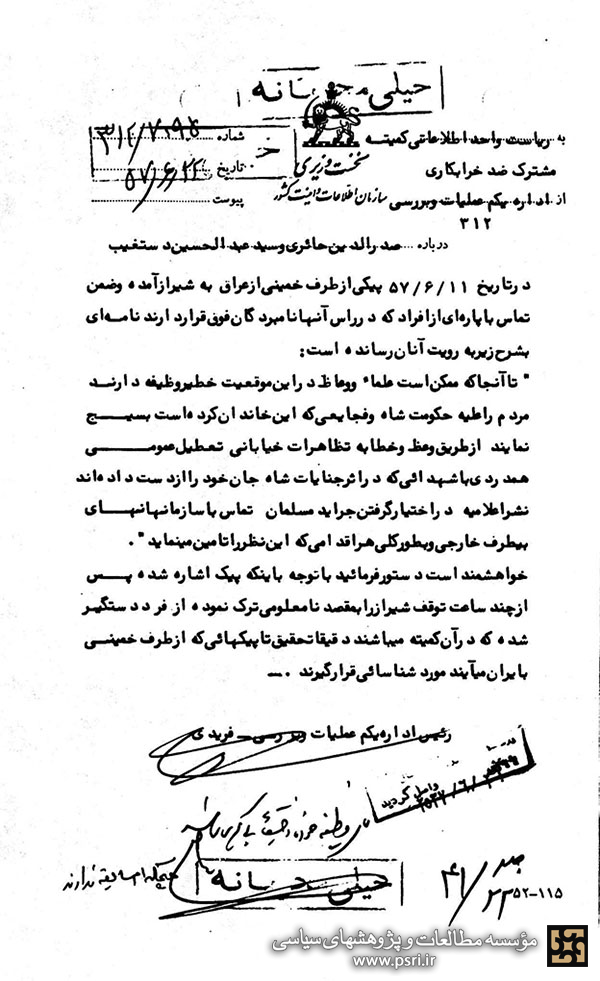 خیلی محرمانه
به ریاست واحد اطلاعاتی کمیته
مشترک ضد خرابکاری
از اداره یکم عملیات و بررسی
۳۱۲
نخست وزیری
سازمان اطلاعات و امنیت کشور
شماره
تاریخ
پیوست
درباره صدرالدین حائری و سید عبدالحسین دستغیب
در تاریخ ۵۷/۶/۱۱ پیکی از طرف خمینی از عراق به شیراز آمده و ضمن
تماس با پاره‌ای از افراد که در راس آنها نامبردگان فوق قرار دارند نامه‌ای
بشرح زیر به رویت آنان رسانده است:
" تا آنجا که ممکن است علماء و وعاظ در این موقعیت خطیر وظیفه دارند
مردم را علیه حکومت شاه و فجایعی که این خاندان کرده است بسیج
نمایند از طریق وعظ و خطابه تظاهرات خیابانی تعطیل عمومی
همدردی با شهدائی که در اثر جنایات شاه جان خود را از دست داده‌اند
نشر اعلامیه در اختیار گرفتن جراید مسلمان تماس با سازمانهای
بیطرف خارجی و بطور کلی هر اقدامی که این نظر را تامین مینماید ".
خواهشمند است دستور فرمائید با توجه باینکه پیک اشاره شده پس
از چند ساعت توقف شیراز را بمقصد نامعلومی ترک نموده از فرد دستگیر
شده که در آن کمیته میباشند دقیقا تحقیق تا پیکهائی که از طرف خمینی
بایران میآیند مورد شناسائی قرار گیرند .—
رئیس اداره یکم عملیات و بررسی - فریدی
وامل گردید
خیلی محرمانه
۵۲-۱۱۵
مؤسسه مطالعات و پژوهشهای سیاسی
www.psri.ir